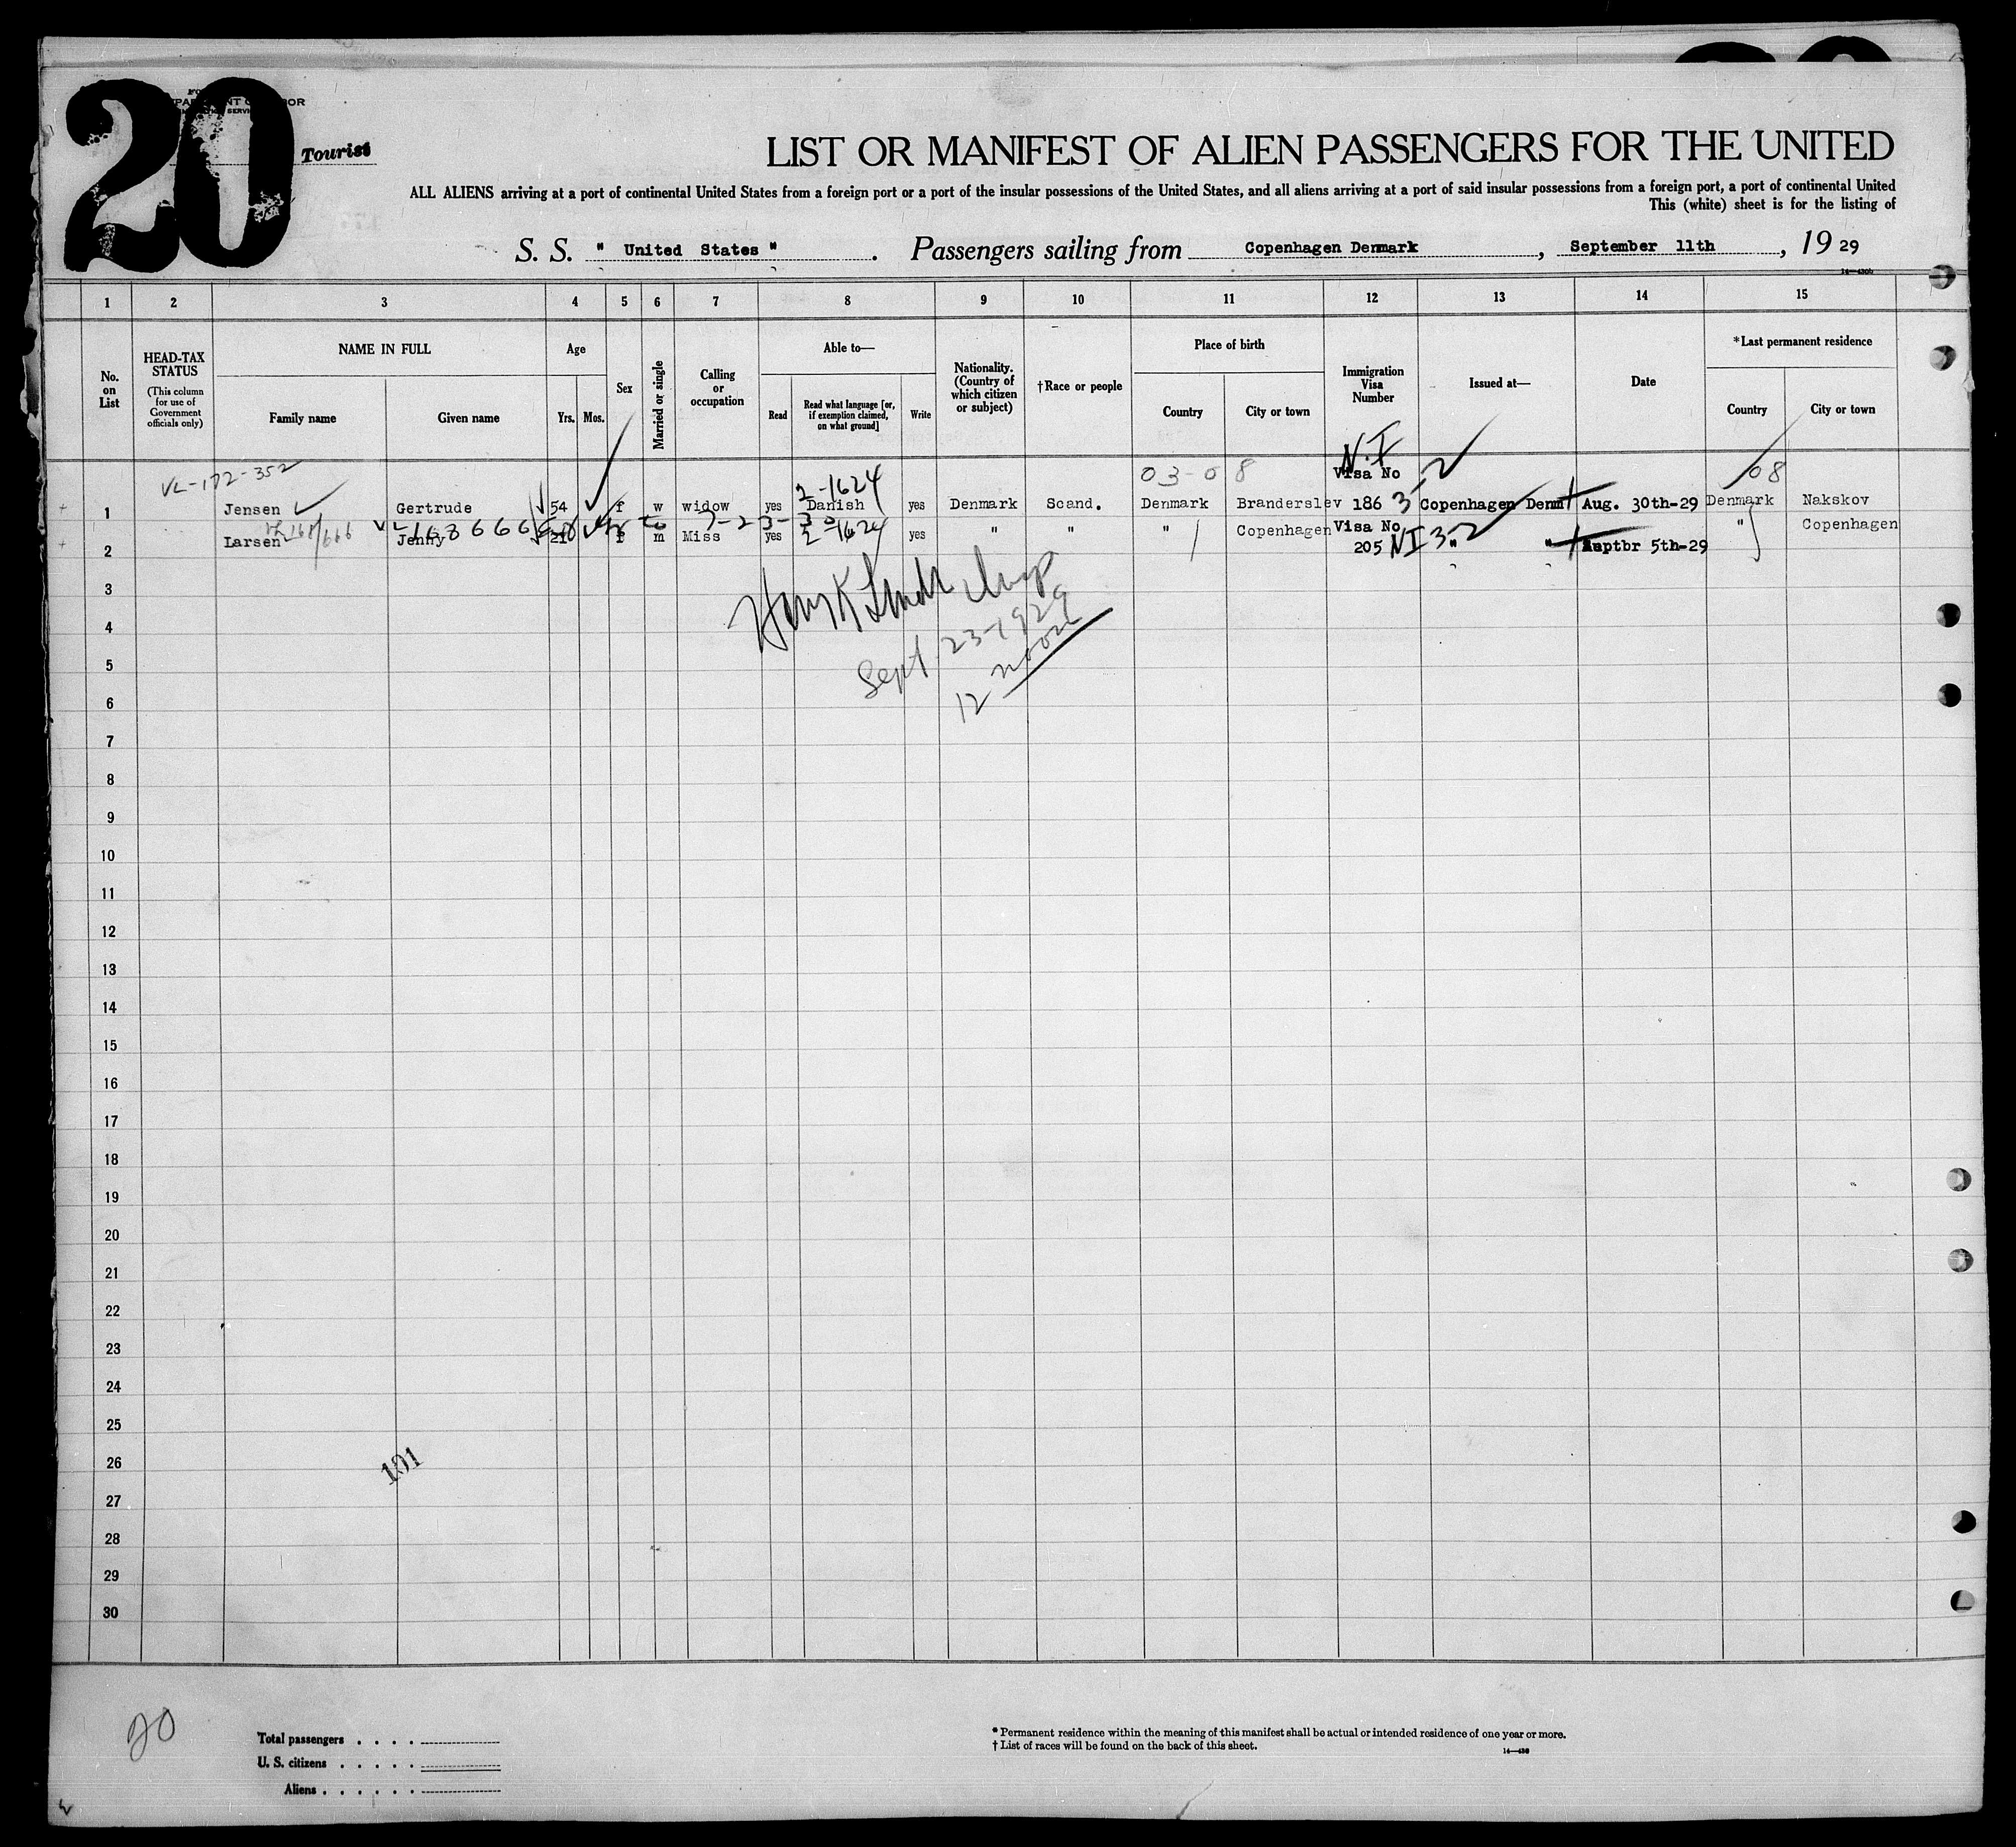 20
Tourist
LIST OR MANIFEST OF ALIEN PASSENGERS FOR THE UNITED
ALL ALIENS arriving at a port of continental United States from a foreign port or a port of the insular possessions of the United States, and all aliens arriving at a port of said insular possessions from a foreign port, a port of continental United
This (white) sheet is for the listing of
S. S. " United States " . Passengers sailing from Copenhagen Denmark , September 11th , 19 29
1 2 3 4 5 6 7 8 9 10 11 12 13 14 15
No. on List
HEAD-TAX STATUS
(This column for use of Government officials only)
NAME IN FULL
Family name Given name
Age
Yrs. Mos.
Sex
Married or single
Calling or occupation
Able to—
Read Read what language [or, if exemption claimed, on what ground] Write
Nationality. (Country of which citizen or subject)
†Race or people
Place of birth
Country City or town
Immigration Visa Number
Issued at—
Date
*Last permanent residence
Country City or town
VL-172-352 2-1624 03-08 N.I 3-2 08
Visa No
1 Jensen Gertrude 54 f w widow yes Danish yes Denmark Scand. Denmark Branderslev 186 Copenhagen Denm Aug. 30th-29 Denmark Nakskov
168/666 2-1624 NI 3-2
Visa No
2 Larsen Jenny 21 f m Miss yes " yes " " " Copenhagen 205 " " Septbr 5th-29 " Copenhagen
3
4
5
6
7
8
9
10
11
12
13
14
15
16
17
18
19
20
21
22
23
24
25
26
27
28
29
30
Sept 23-1929
12 noon
101
20
Total passengers . . . .
U. S. citizens . . . . .
Aliens . . . . . .
* Permanent residence within the meaning of this manifest shall be actual or intended residence of one year or more.
† List of races will be found on the back of this sheet.